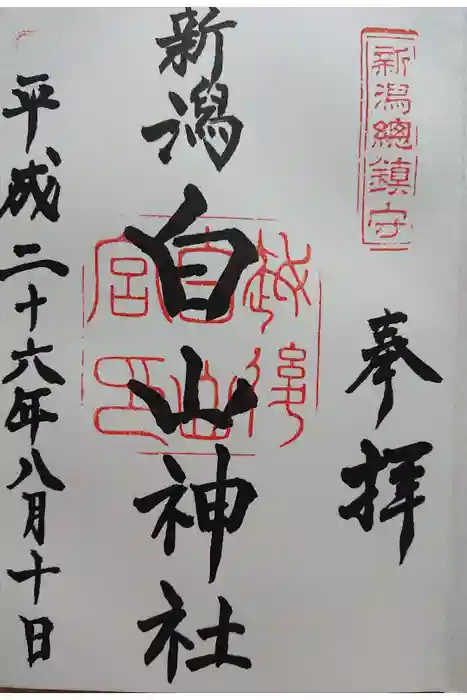 新潟總鎮守
奉拝
新潟白山神社
越後
白山
宮印
平成二十六年八月十日